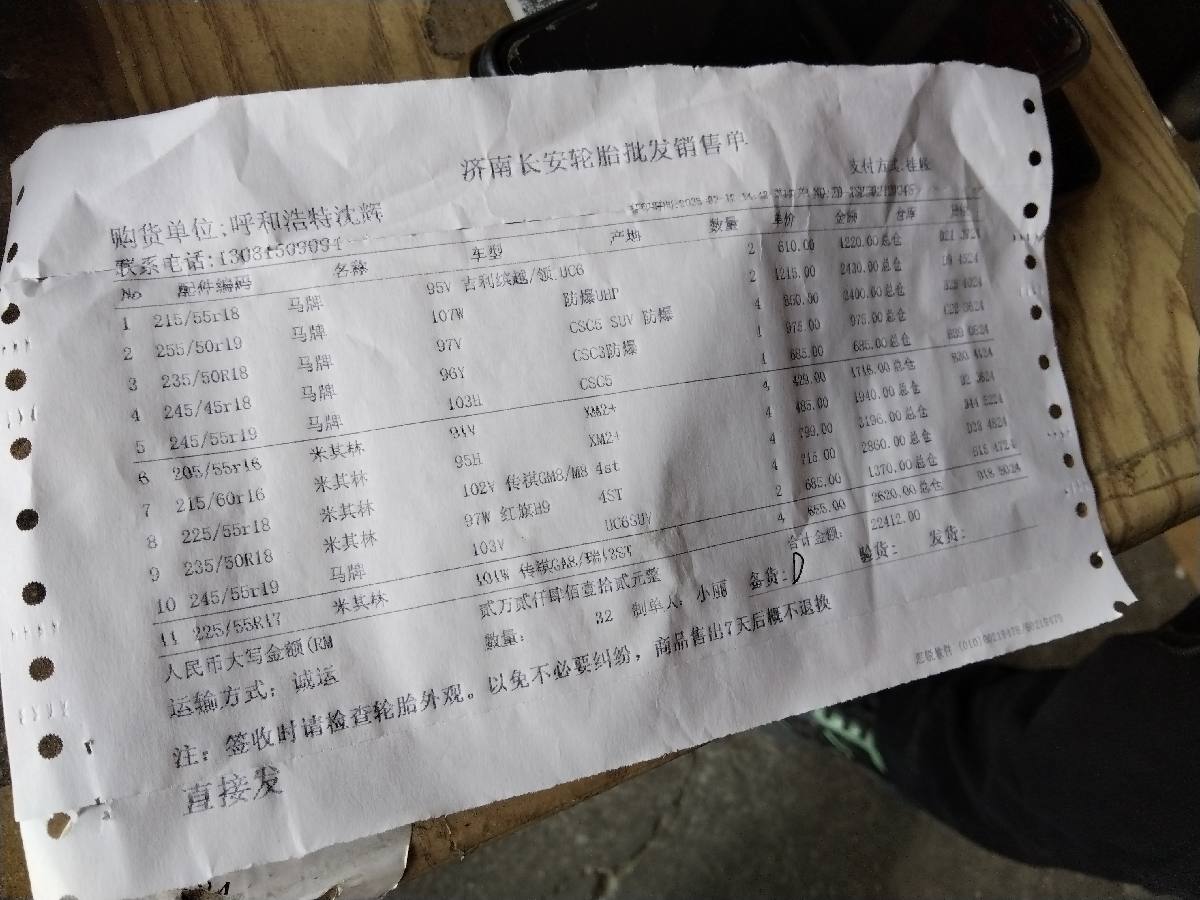 济南长安轮胎批发销售单
支付方式:挂账
购货单位:呼和浩特沈辉
联系电话:
No 配件编码 名称 车型 产期 数量 单价 金额 仓库
1 215/55r18 马牌 95V 吉利缤越/领 UC6 2 610.00 1220.00 总仓
2 255/50r19 马牌 107W 防爆UHP 2 1215.00 2430.00 总仓
3 235/50R18 马牌 97V CSC5 SUV 防爆 4 2400.00 总仓
4 245/45r18 马牌 96Y CSC3防爆 1 975.00 975.00 总仓
5 245/55r19 马牌 103H CSC5 1 685.00 685.00 总仓
6 205/55r16 米其林 91V XM2+ 4 429.00 1716.00 总仓
7 215/60r16 米其林 95H XM2+ 4 485.00 1940.00 总仓
8 225/55r18 米其林 102V 传祺GM8/M8 4st 4 799.00 3196.00 总仓
9 235/50R18 米其林 97W 红旗H9 4ST 4 715.00 2860.00 总仓
10 245/55r19 马牌 103V UC6SUV 2 685.00 1370.00 总仓
11 225/55R17 米其林 101W 传祺GA8/瑞13ST 4 655.00 2620.00 总仓
人民币大写金额(RM 贰万贰仟肆佰壹拾贰元整 合计金额: 22412.00
运输方式: 诚运 数量: 32 制单人: 小丽 备货: D 验货: 发货:
注: 签收时请检查轮胎外观。以免不必要纠纷，商品售出7天后概不退换
直接发